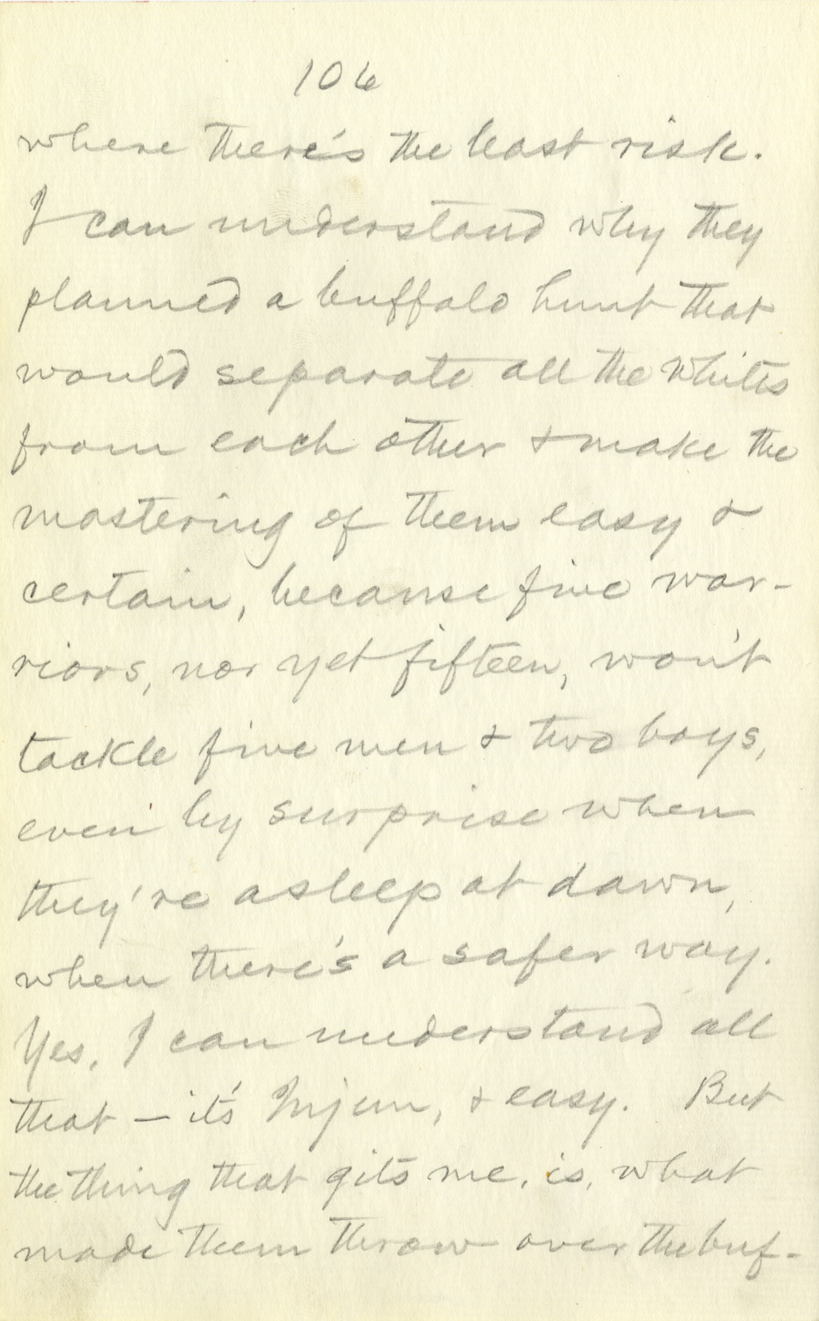 106
where there's the least risk.
I can understand why they
planned a buffalo hunt that
would separate all the whites
from each other & make the
mastering of them easy &
certain, because five war-
riors, nor yet fifteen, won't
tackle five men & two boys,
even by surprise when
they're asleep at dawn,
when there's a safer way.
Yes, I can understand all
that — it's Injun, & easy. But
the thing that gits me, is, what
made them throw over the buf-